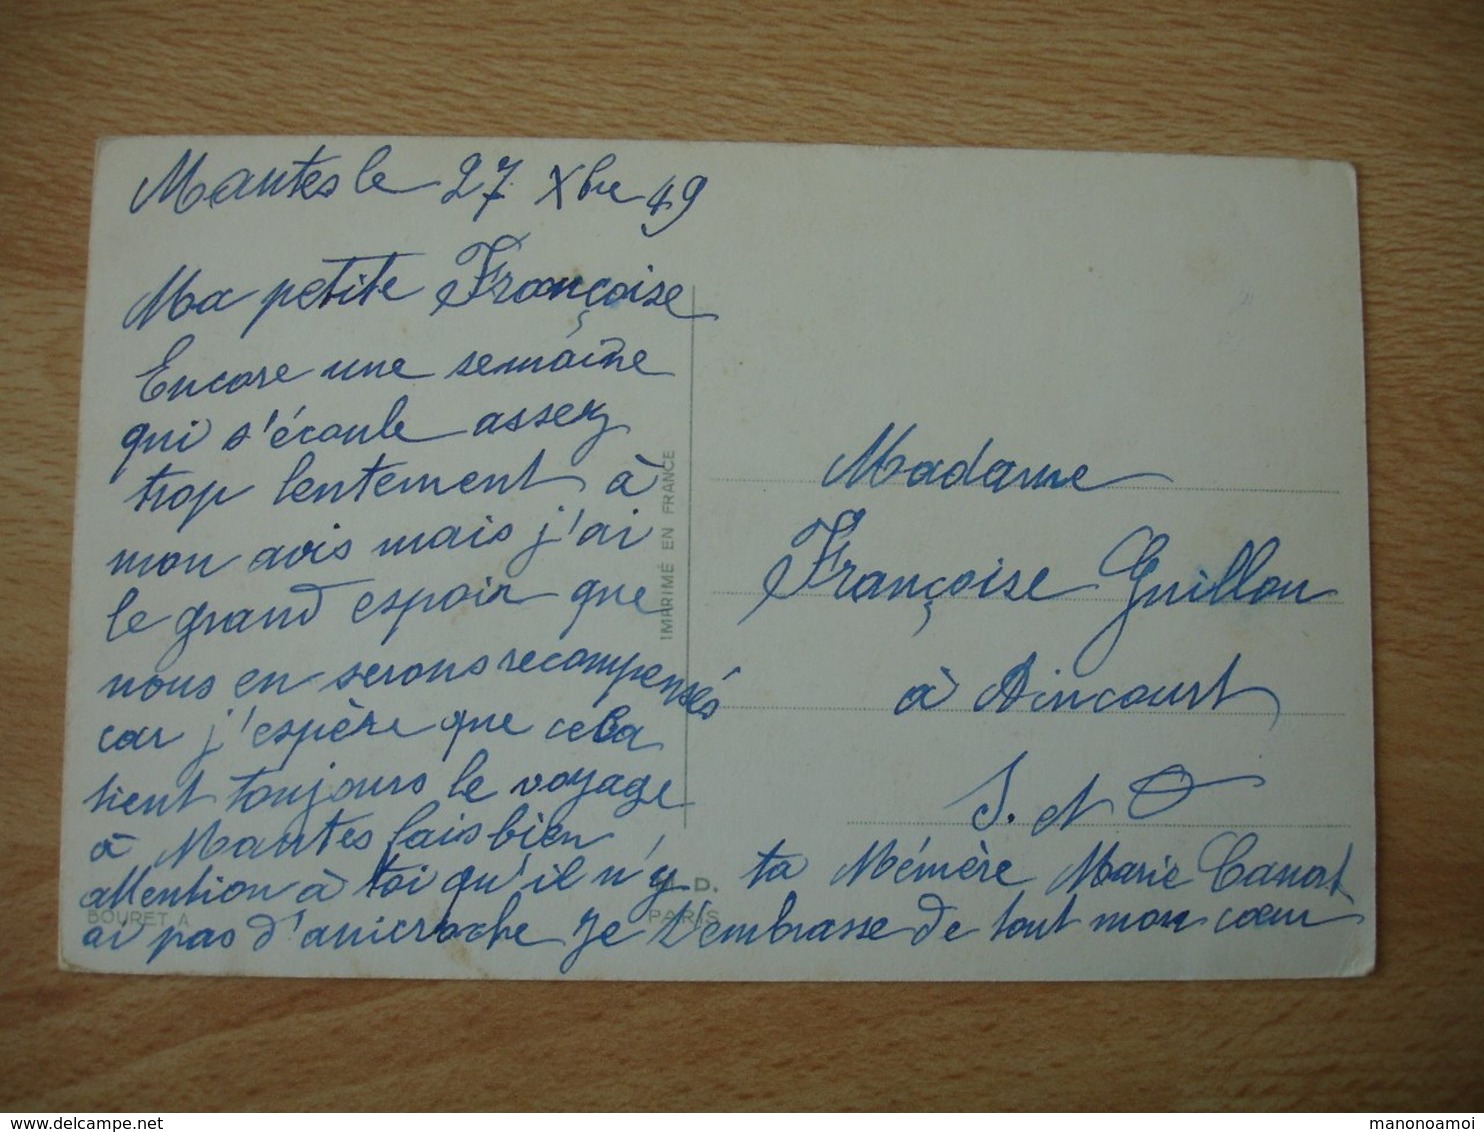 Mantes le 27 Xbre 49
Ma petite Françoise
Encore une semaine
qui s'écoule assez
trop lentement à
mon avis mais j'ai
le grand espoir que
nous en serons recompensés
car j'espère que cela
tient toujours le voyage
à Mantes fais bien
attention à toi qu'il n'y
ai pas d'anicroche Je t'embrasse de tout mon cœur
ta Mémère Marie Canot
IMPRIMÉ EN FRANCE
Madame
Françoise Guillou
à Aincourt
S. et O
D.
BOURET A
PARIS
manonoamoi